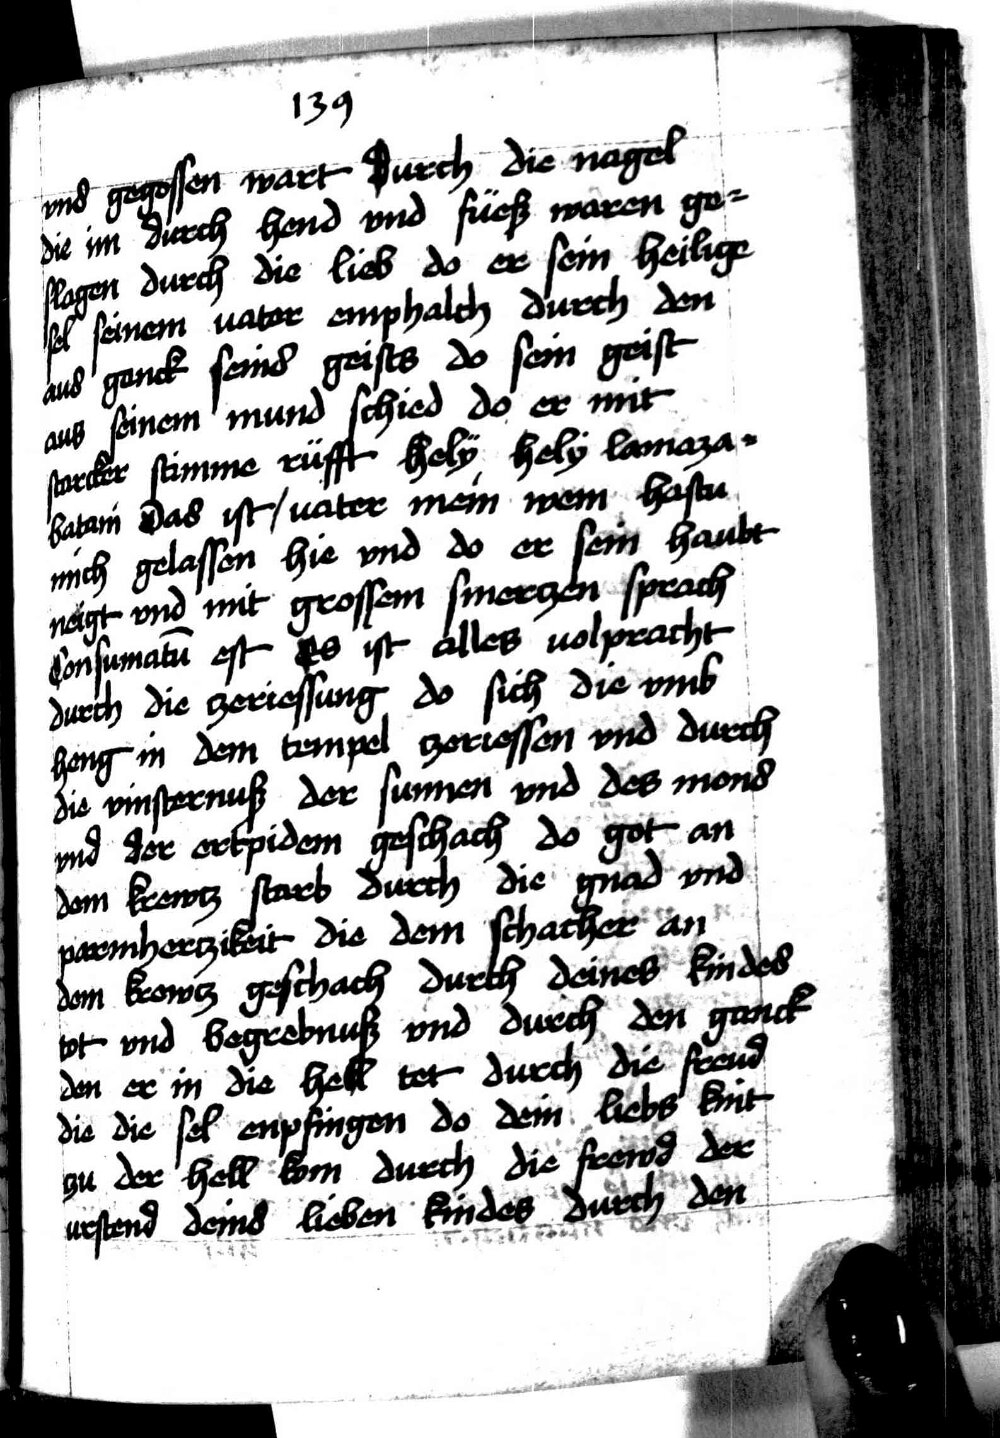 139
vnd gegossen wart Durch die nagel
die im durch hend vnd füeß waren ge=
slagen durch die lieb do er sein heilige
sel seinem uater emphalch durch den
aus ganck seins geists do sein geist
aus seinem mund schied do er mit
starcker stimme rüfft hely hely lamaza=
batani Das ist / uater mein wem hastu
mich gelassen hie vnd do er sein haubt
neigt vnd mit grossem smertzen sprach
Consumatū est Es ist alles uolpracht
durch die zeriessung do sich die vmb
heng in dem tempel zeriessen vnd durch
die vinsternuß der sunnen vnd des mons
vnd der ertpidem geschach do got an
dem krewtz starb durch die gnad vnd
parmhertzikeit die dem schacher an
dem krewtz geschach durch deines kindes
tot vnd begrebnuß vnd durch den ganck
den er in die hell tet durch die freud
die die sel enpfingen do dein liebs kint
zu der hell kom durch die frewd der
urstend deins lieben kindes durch den